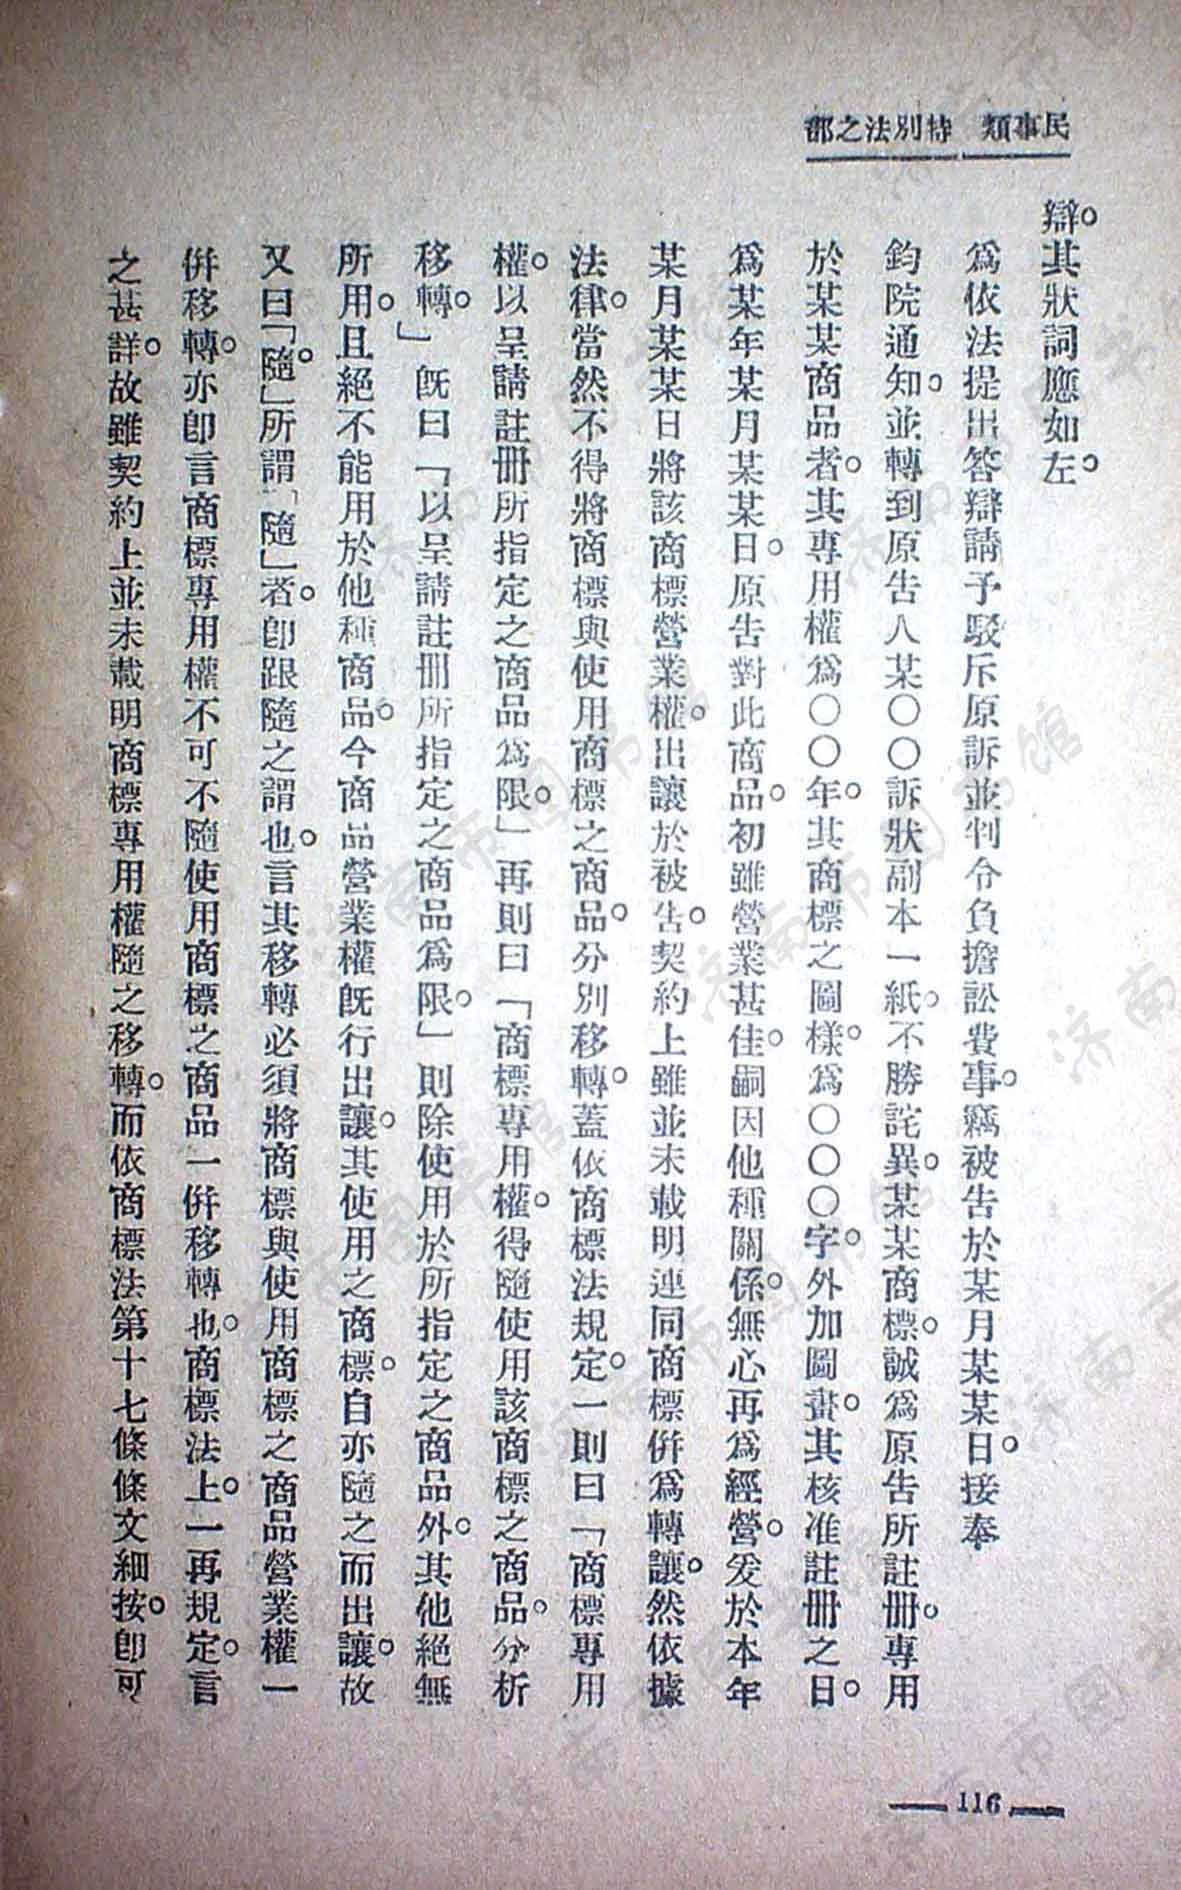 民事類　特別法之部
辯。其狀詞應如左。
爲依法提出答辯請予駁斥原訴並判令負擔訟費事。竊被告於某月某某日。接奉
鈞院通知。並轉到原告人某〇〇訴狀副本一紙。不勝詫異。某某商標。誠爲原告所註册。專用
於某某商品者。其專用權爲〇〇年。其商標之圖樣。爲〇〇〇字。外加圖畫。其核准註册之日。
爲某年某月某某日。原告對此商品。初雖營業甚佳。嗣因他種關係。無心再爲經營。爰於本年
某月某某日將該商標營業權。出讓於被告。契約上雖並未載明連同商標併爲轉讓。然依據
法律。當然不得將商標與使用商標之商品。分別移轉。蓋依商標法規定。一則曰「商標專用
權。以呈請註册所指定之商品爲限。」再則曰「商標專用權。得隨使用該商標之商品。分析
移轉。」旣曰「以呈請註册所指定之商品爲限。」則除使用於所指定之商品外。其他絕無
所用。且絕不能用於他種商品。今商品營業權旣行出讓。其使用之商標。自亦隨之而出讓。故
又曰「隨。」所謂「隨」者。卽跟隨之謂也。言其移轉必須將商標與使用商標之商品營業權一
併移轉。亦卽言商標專用權不可不隨使用商標之商品一併移轉也。商標法上。一再規定。言
之甚詳。故雖契約上並未載明商標專用權隨之移轉。而依商標法第十七條條文細按。卽可
116
济南市图书馆